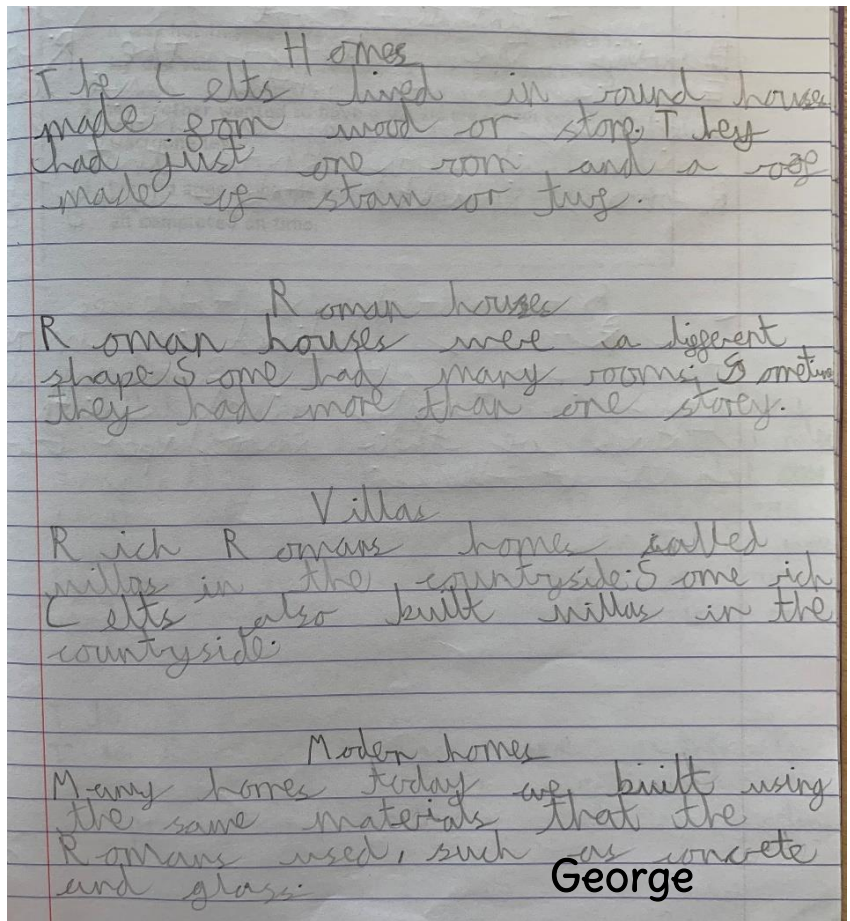 Homes
The Celts lived in round houses
made from wood or stone. They
had just one room and a roof
made of straw or turf.
Roman houses
Roman houses were a different
shape Some had many rooms. Sometimes
they had more than one storey.
Villas
Rich Romans homes called
villas in the countryside. Some rich
Celts also built villas in the
countryside.
Moden homes
Many homes today are built using
the same materials that the
Romans used, such as concrete
and glass.
George